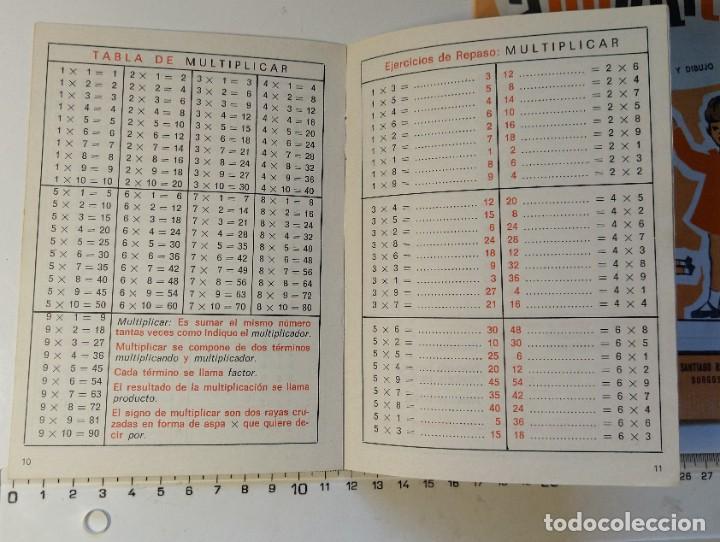 TABLA DE MULTIPLICAR
1 × 1 = 1 2 × 1 = 2 3 × 1 = 3 4 × 1 = 4
1 × 2 = 2 2 × 2 = 4 3 × 2 = 6 4 × 2 = 8
1 × 3 = 3 2 × 3 = 6 3 × 3 = 9 4 × 3 = 12
1 × 4 = 4 2 × 4 = 8 3 × 4 = 12 4 × 4 = 16
1 × 5 = 5 2 × 5 = 10 3 × 5 = 15 4 × 5 = 20
1 × 6 = 6 2 × 6 = 12 3 × 6 = 18 4 × 6 = 24
1 × 7 = 7 2 × 7 = 14 3 × 7 = 21 4 × 7 = 28
1 × 8 = 8 2 × 8 = 16 3 × 8 = 24 4 × 8 = 32
1 × 9 = 9 2 × 9 = 18 3 × 9 = 27 4 × 9 = 36
1 × 10 = 10 2 × 10 = 20 3 × 10 = 30 4 × 10 = 40
5 × 1 = 5 6 × 1 = 6 7 × 1 = 7 8 × 1 = 8
5 × 2 = 10 6 × 2 = 12 7 × 2 = 14 8 × 2 = 16
5 × 3 = 15 6 × 3 = 18 7 × 3 = 21 8 × 3 = 24
5 × 4 = 20 6 × 4 = 24 7 × 4 = 28 8 × 4 = 32
5 × 5 = 25 6 × 5 = 30 7 × 5 = 35 8 × 5 = 40
5 × 6 = 30 6 × 6 = 36 7 × 6 = 42 8 × 6 = 48
5 × 7 = 35 6 × 7 = 42 7 × 7 = 49 8 × 7 = 56
5 × 8 = 40 6 × 8 = 48 7 × 8 = 56 8 × 8 = 64
5 × 9 = 45 6 × 9 = 54 7 × 9 = 63 8 × 9 = 72
5 × 10 = 50 6 × 10 = 60 7 × 10 = 70 8 × 10 = 80
9 × 1 = 9
9 × 2 = 18
9 × 3 = 27
9 × 4 = 36
9 × 5 = 45
9 × 6 = 54
9 × 7 = 63
9 × 8 = 72
9 × 9 = 81
9 × 10 = 90
Multiplicar: Es sumar el mismo número
tantas veces como indique el multiplicador.
Multiplicar se compone de dos términos
multiplicando y multiplicador.
Cada término se llama factor.
El resultado de la multiplicación se llama
producto.
El signo de multiplicar son dos rayas cru-
zadas en forma de aspa × que quiere de-
cir por.
10
Ejercicios de Repaso: MULTIPLICAR
1 × 3 = .................... 3 12 .................... = 2 × 6
1 × 5 = .................... 5 8 .................... = 2 × 4
1 × 4 = .................... 4 14 .................... = 2 × 7
1 × 6 = .................... 6 10 .................... = 2 × 5
1 × 2 = .................... 2 16 .................... = 2 × 8
1 × 7 = .................... 7 18 .................... = 2 × 9
1 × 1 = .................... 1 2 .................... = 2 × 1
1 × 8 = .................... 8 6 .................... = 2 × 3
1 × 9 = .................... 9 4 .................... = 2 × 2
3 × 4 = .................... 12 20 .................... = 4 × 5
3 × 5 = .................... 15 8 .................... = 4 × 2
3 × 2 = .................... 6 28 .................... = 4 × 7
3 × 8 = .................... 24 24 .................... = 4 × 6
3 × 6 = .................... 18 12 .................... = 4 × 3
3 × 3 = .................... 9 32 .................... = 4 × 8
3 × 1 = .................... 3 36 .................... = 4 × 9
3 × 9 = .................... 27 4 .................... = 4 × 1
3 × 7 = .................... 21 16 .................... = 4 × 4
5 × 6 = .................... 30 48 .................... = 6 × 8
5 × 2 = .................... 10 30 .................... = 6 × 5
5 × 5 = .................... 25 6 .................... = 6 × 1
5 × 4 = .................... 20 12 .................... = 6 × 2
5 × 9 = .................... 45 54 .................... = 6 × 9
5 × 7 = .................... 35 42 .................... = 6 × 7
5 × 8 = .................... 40 24 .................... = 6 × 4
5 × 1 = .................... 5 36 .................... = 6 × 6
5 × 3 = .................... 15 18 .................... = 6 × 3
11
Y DIBUJO
SANTIAGO R
BURGOS
0 1 2 3 4 5 6 7 8 9 10 11 12 13 14 15 16 17 18 19 20
26 27
todocoleccion